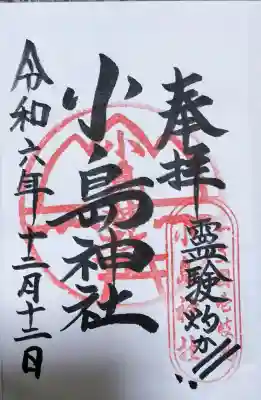 奉拝
霊験灼か
小島神社
令和六年十二月十二日